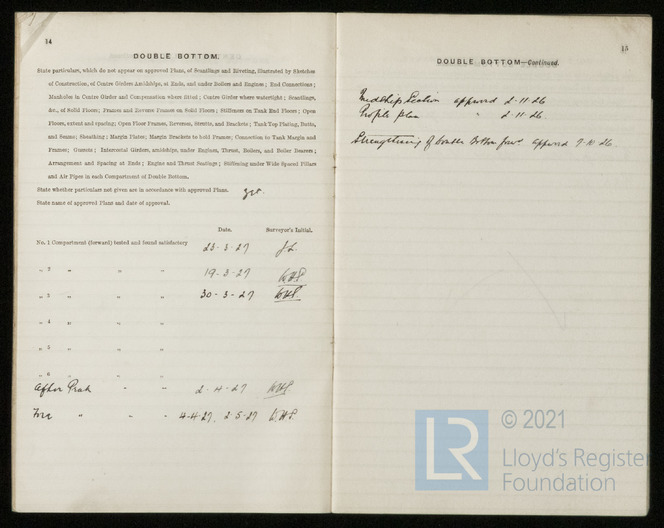 14
DOUBLE BOTTOM.
State particulars, which do not appear on approved Plans, of Scantlings and Riveting, illustrated by Sketches
of Construction, of Centre Girders Amidships, at Ends, and under Boilers and Engines; End Connections;
Manholes in Centre Girder and Compensation where fitted; Centre Girder where watertight; Scantlings,
&c., of Solid Floors; Frames and Reverse Frames on Solid Floors; Stiffeners on Tank End Floors; Open
Floors, extent and spacing; Open Floor Frames, Reverses, Struts, and Brackets; Tank Top Plating, Butts,
and Seams; Sheathing; Margin Plate; Margin Brackets to hold Frames; Connection to Tank Margin and
Frames; Gussets; Intercostal Girders, amidships, under Engines, Thrust, Boilers, and Boiler Bearers;
Arrangement and Spacing at Ends; Engine and Thrust Seatings; Stiffening under Wide Spaced Pillars
and Air Pipes in each Compartment of Double Bottom.
State whether particulars not given are in accordance with approved Plans. Yes.
State name of approved Plans and date of approval.
Date. Surveyor's Initial.
No. 1 Compartment (forward) tested and found satisfactory 23-3-27
„ 2 „ „ „ 19-3-27 W.H.P.
„ 3 „ „ „ 30-3-27 W.H.P.
„ 4 „ „ „
„ 5 „ „ „
„ 6 „ „ „
After Peak „ „ 2-4-27 W.H.P.
Fore „ „ „ 4-4-27, 2-5-27 W.H.P.
15
DOUBLE BOTTOM—Continued.
Midship Section approved 2-11-26
Profile plan „ 2-11-26
Strengthening of double bottom forwd approved 9-10-26.
LR
© 2021
Lloyd's Register
Foundation